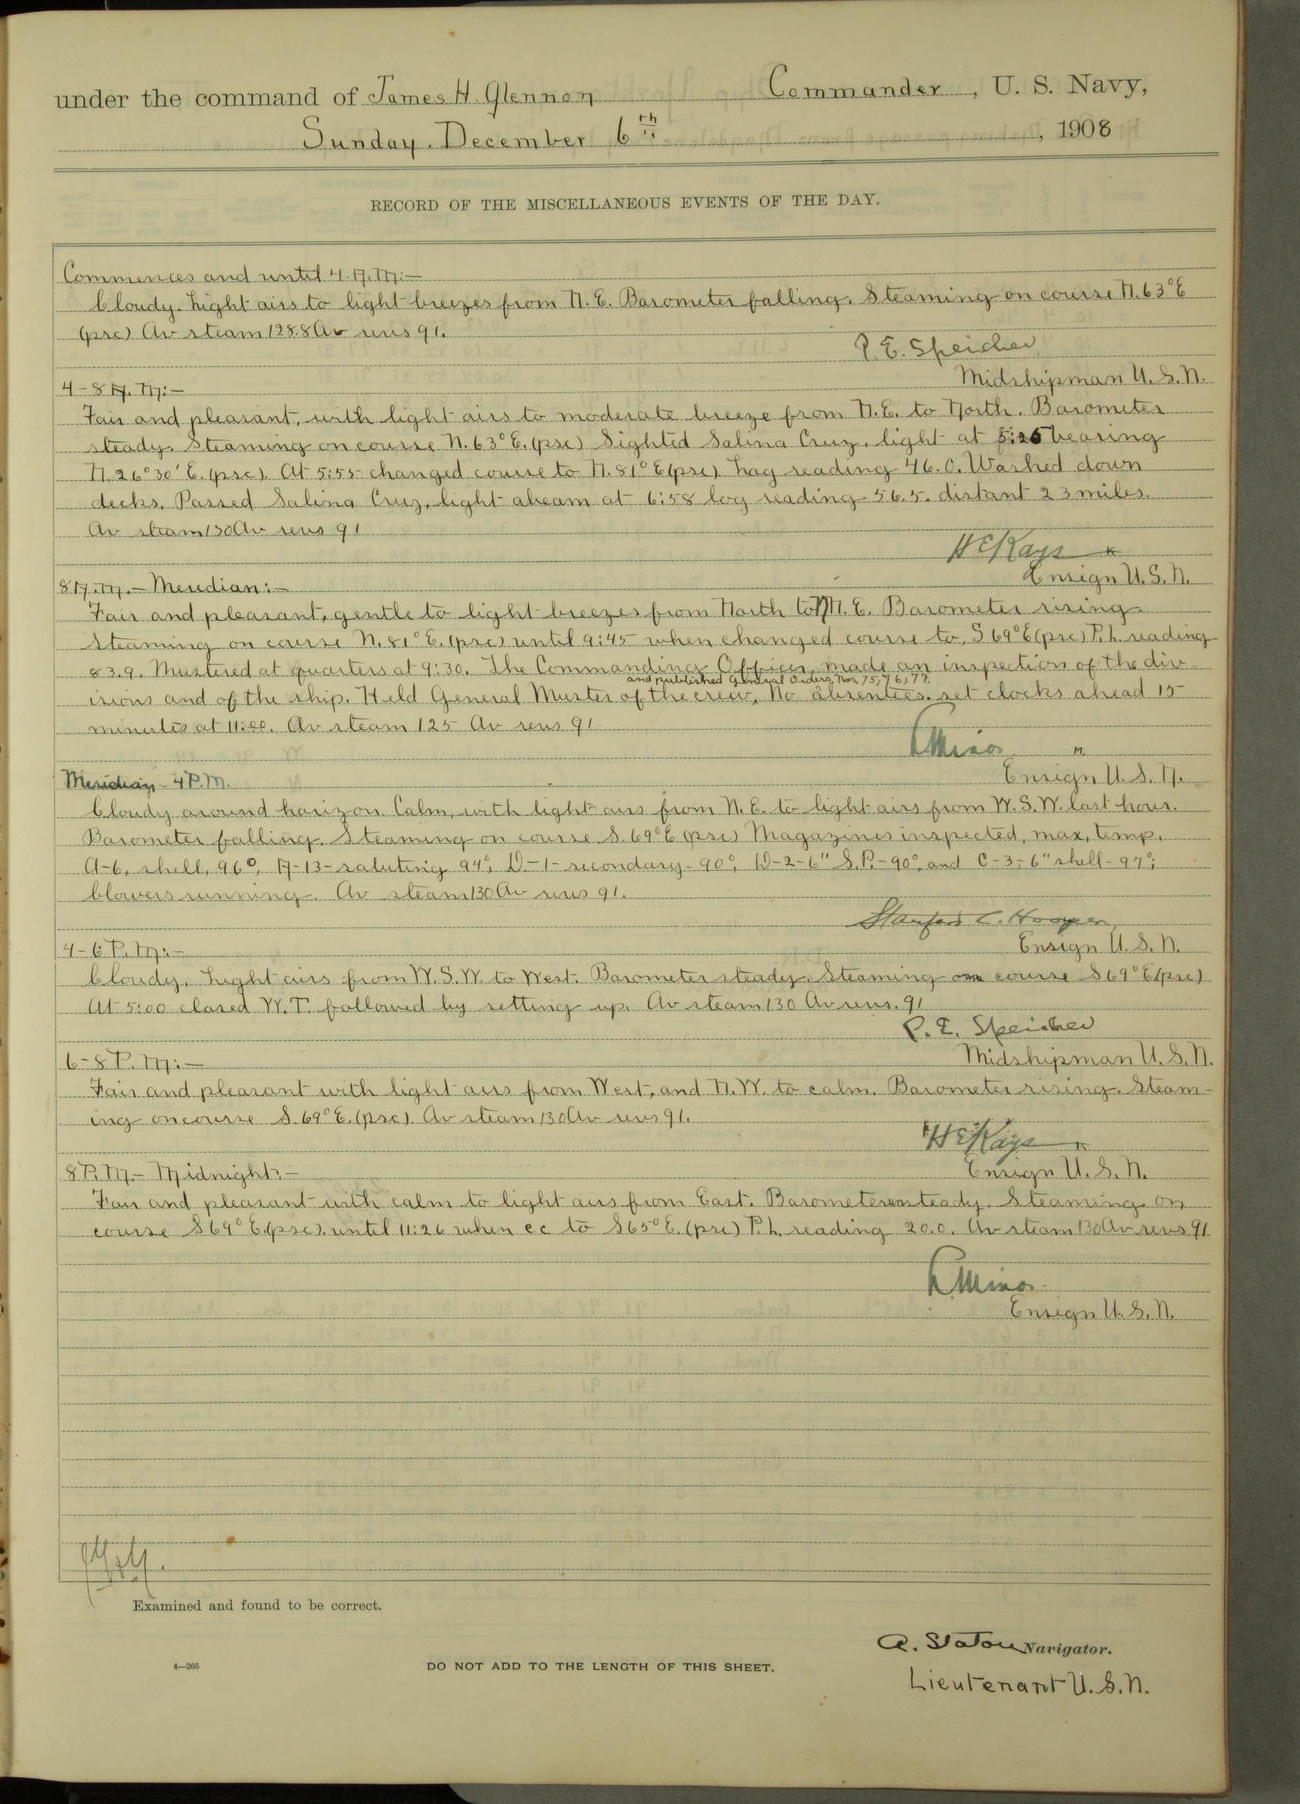 under the command of James H. Glennon Commander, U. S. Navy,
Sunday. December 6th, 1908
RECORD OF THE MISCELLANEOUS EVENTS OF THE DAY.
Commences and until 4. A.M:—
Cloudy. Light airs to light breezes from N.E. Barometer falling. Steaming on course N.63°E
(psc) Av steam 128.8 Av revs 91.
P.E. Speicher
Midshipman U.S.N.
4-8 A.M:—
Fair and pleasant, with light airs to moderate breeze from N.E. to North. Barometer
steady. Steaming on course N.63°E.(psc) Sighted Salina Cruz, light at 5:25 bearing
N.26°30'E.(psc). At 5:55 changed course to N.81°E(psc) Log reading 46.0. Washed down
decks. Passed Salina Cruz, light abeam at 6:58 log reading 56.5. distant 23 miles.
Av steam 130 Av revs 91
H E Kays K
Ensign U.S.N.
8 A.M.—Meridian:—
Fair and pleasant, gentle to light breezes from North to N N.E. Barometer rising.
Steaming on course N.81°E.(psc) until 9:45 when changed course to S69°E(psc) P.L. reading
83.9. Mustered at quarters at 9:30. The Commanding Officer, made an inspection of the div-
and published General Orders, Nos, 75, 76, 77.
isions and of the ship. Held General Muster of the crew, No absentees. set clocks ahead 15
minutes at 11:00. Av steam 125 Av revs 91
Minor M.
Ensign U.S.N.
Meridian - 4 P.M.
Cloudy around horizon. Calm, with light airs from N.E. to light airs from W.S.W. last hour.
Barometer falling. Steaming on course S.69°E(psc) Magazines inspected, max, temp.
A-6, shell, 96°, A-13-saluting 94°, D-1-secondary-90°, D-2-6" S.P.-90°, and C-3-6" shell-97°;
blowers running. Av steam 130 Av revs 91.
Stanford C. Hooper
Ensign U.S.N.
4-6 P.M:—
Cloudy. Light airs from W.S.W. to West. Barometer steady. Steaming on course S69°E(psc)
At 5:00 closed W.T. followed by setting up. Av steam 130 Av revs. 91
P.E. Speicher
Midshipman U.S.N.
6-8 P.M:—
Fair and pleasant with light airs from West, and N.W. to calm. Barometer rising. Steam-
ing on course S.69°E.(psc). Av steam 130 Av revs 91.
H E Kays K
Ensign U.S.N.
8 P.M.— Midnight:—
Fair and pleasant with calm to light airs from East. Barometer unsteady. Steaming on
course S69°E.(psc). until 11:26 when cc to S65°E.(psc) P.L. reading 20.0. Av steam 130 Av revs 91
Minor
Ensign U.S.N.
Examined and found to be correct.
A. Staton Navigator.
4—265
DO NOT ADD TO THE LENGTH OF THIS SHEET.
Lieutenant U.S.N.